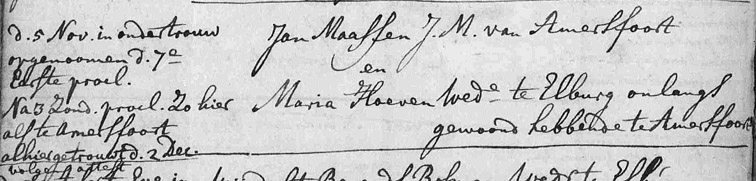 d. 5 Nov. in ondertrouw
opgenoomen d. 7e
Eerste procl.
Na 3 Zond. procl. Zo hier
als te Amersfoort
alhier getrouwt d. 2 Dec.
volgens attest
Jan Maassen J. M. van Amersfoort
en
Maria Hoeven Wede te Elburg onlangs
gewoond hebbende te Amersfoort